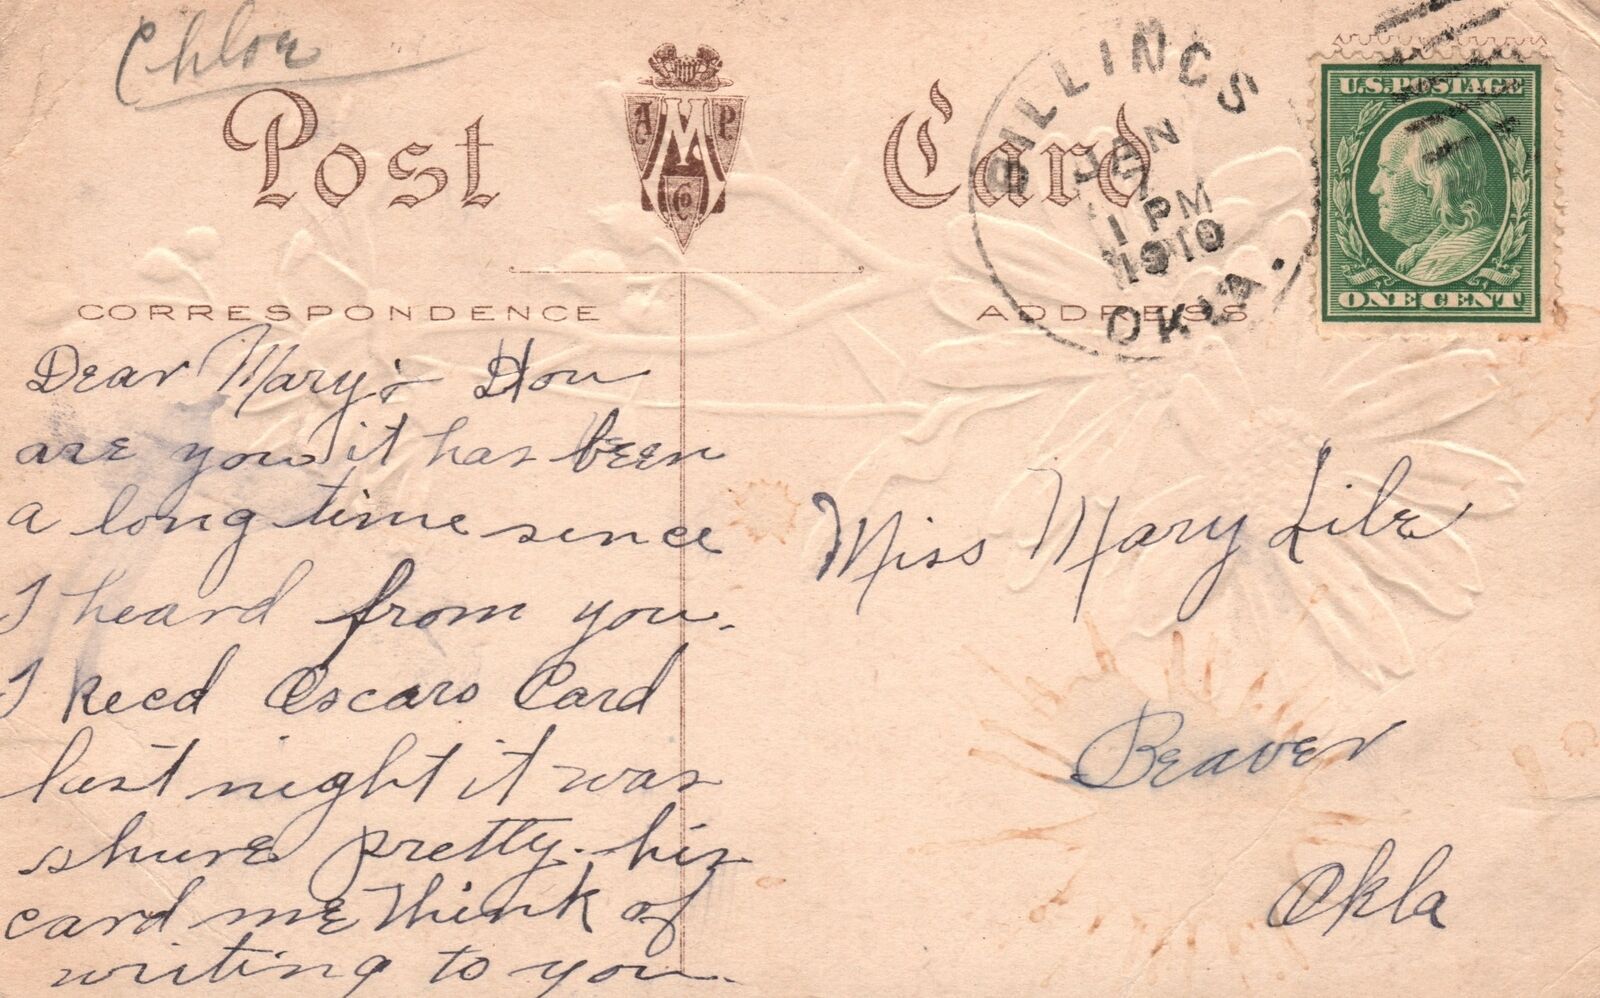 Chloe
Post Card
A M P
C Co
BILLINGS
JAN
7
1 PM
1910
OKLA.
U.S. POSTAGE
ONE CENT
CORRESPONDENCE
ADDRESS
Dear Mary:- How
are you it has been
a long time sence
I heard from you.
I Recd Oscars Card
last night it was
shure pretty. his
card me think of
writing to you.
Miss Mary Lile
Beaver
Okla